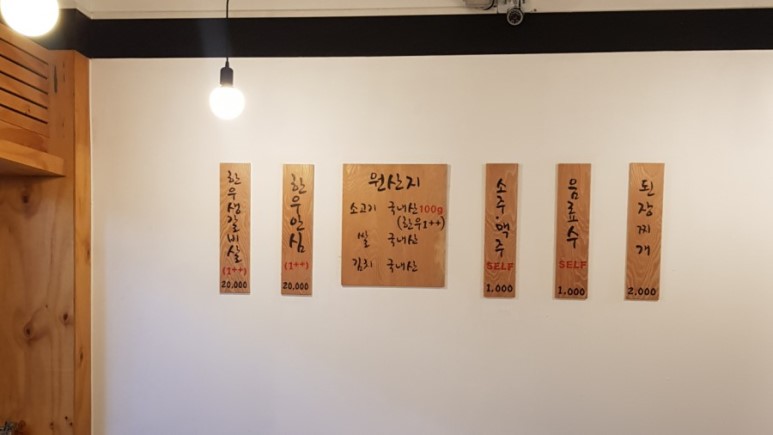 한우생갈비살
(1++)
20,000
한우안심
(1++)
20,000
원산지
소고기 국내산 100g
(한우1++)
쌀 국내산
김치 국내산
소주·맥주
SELF
1,000
음료수
SELF
1,000
된장찌개
2,000